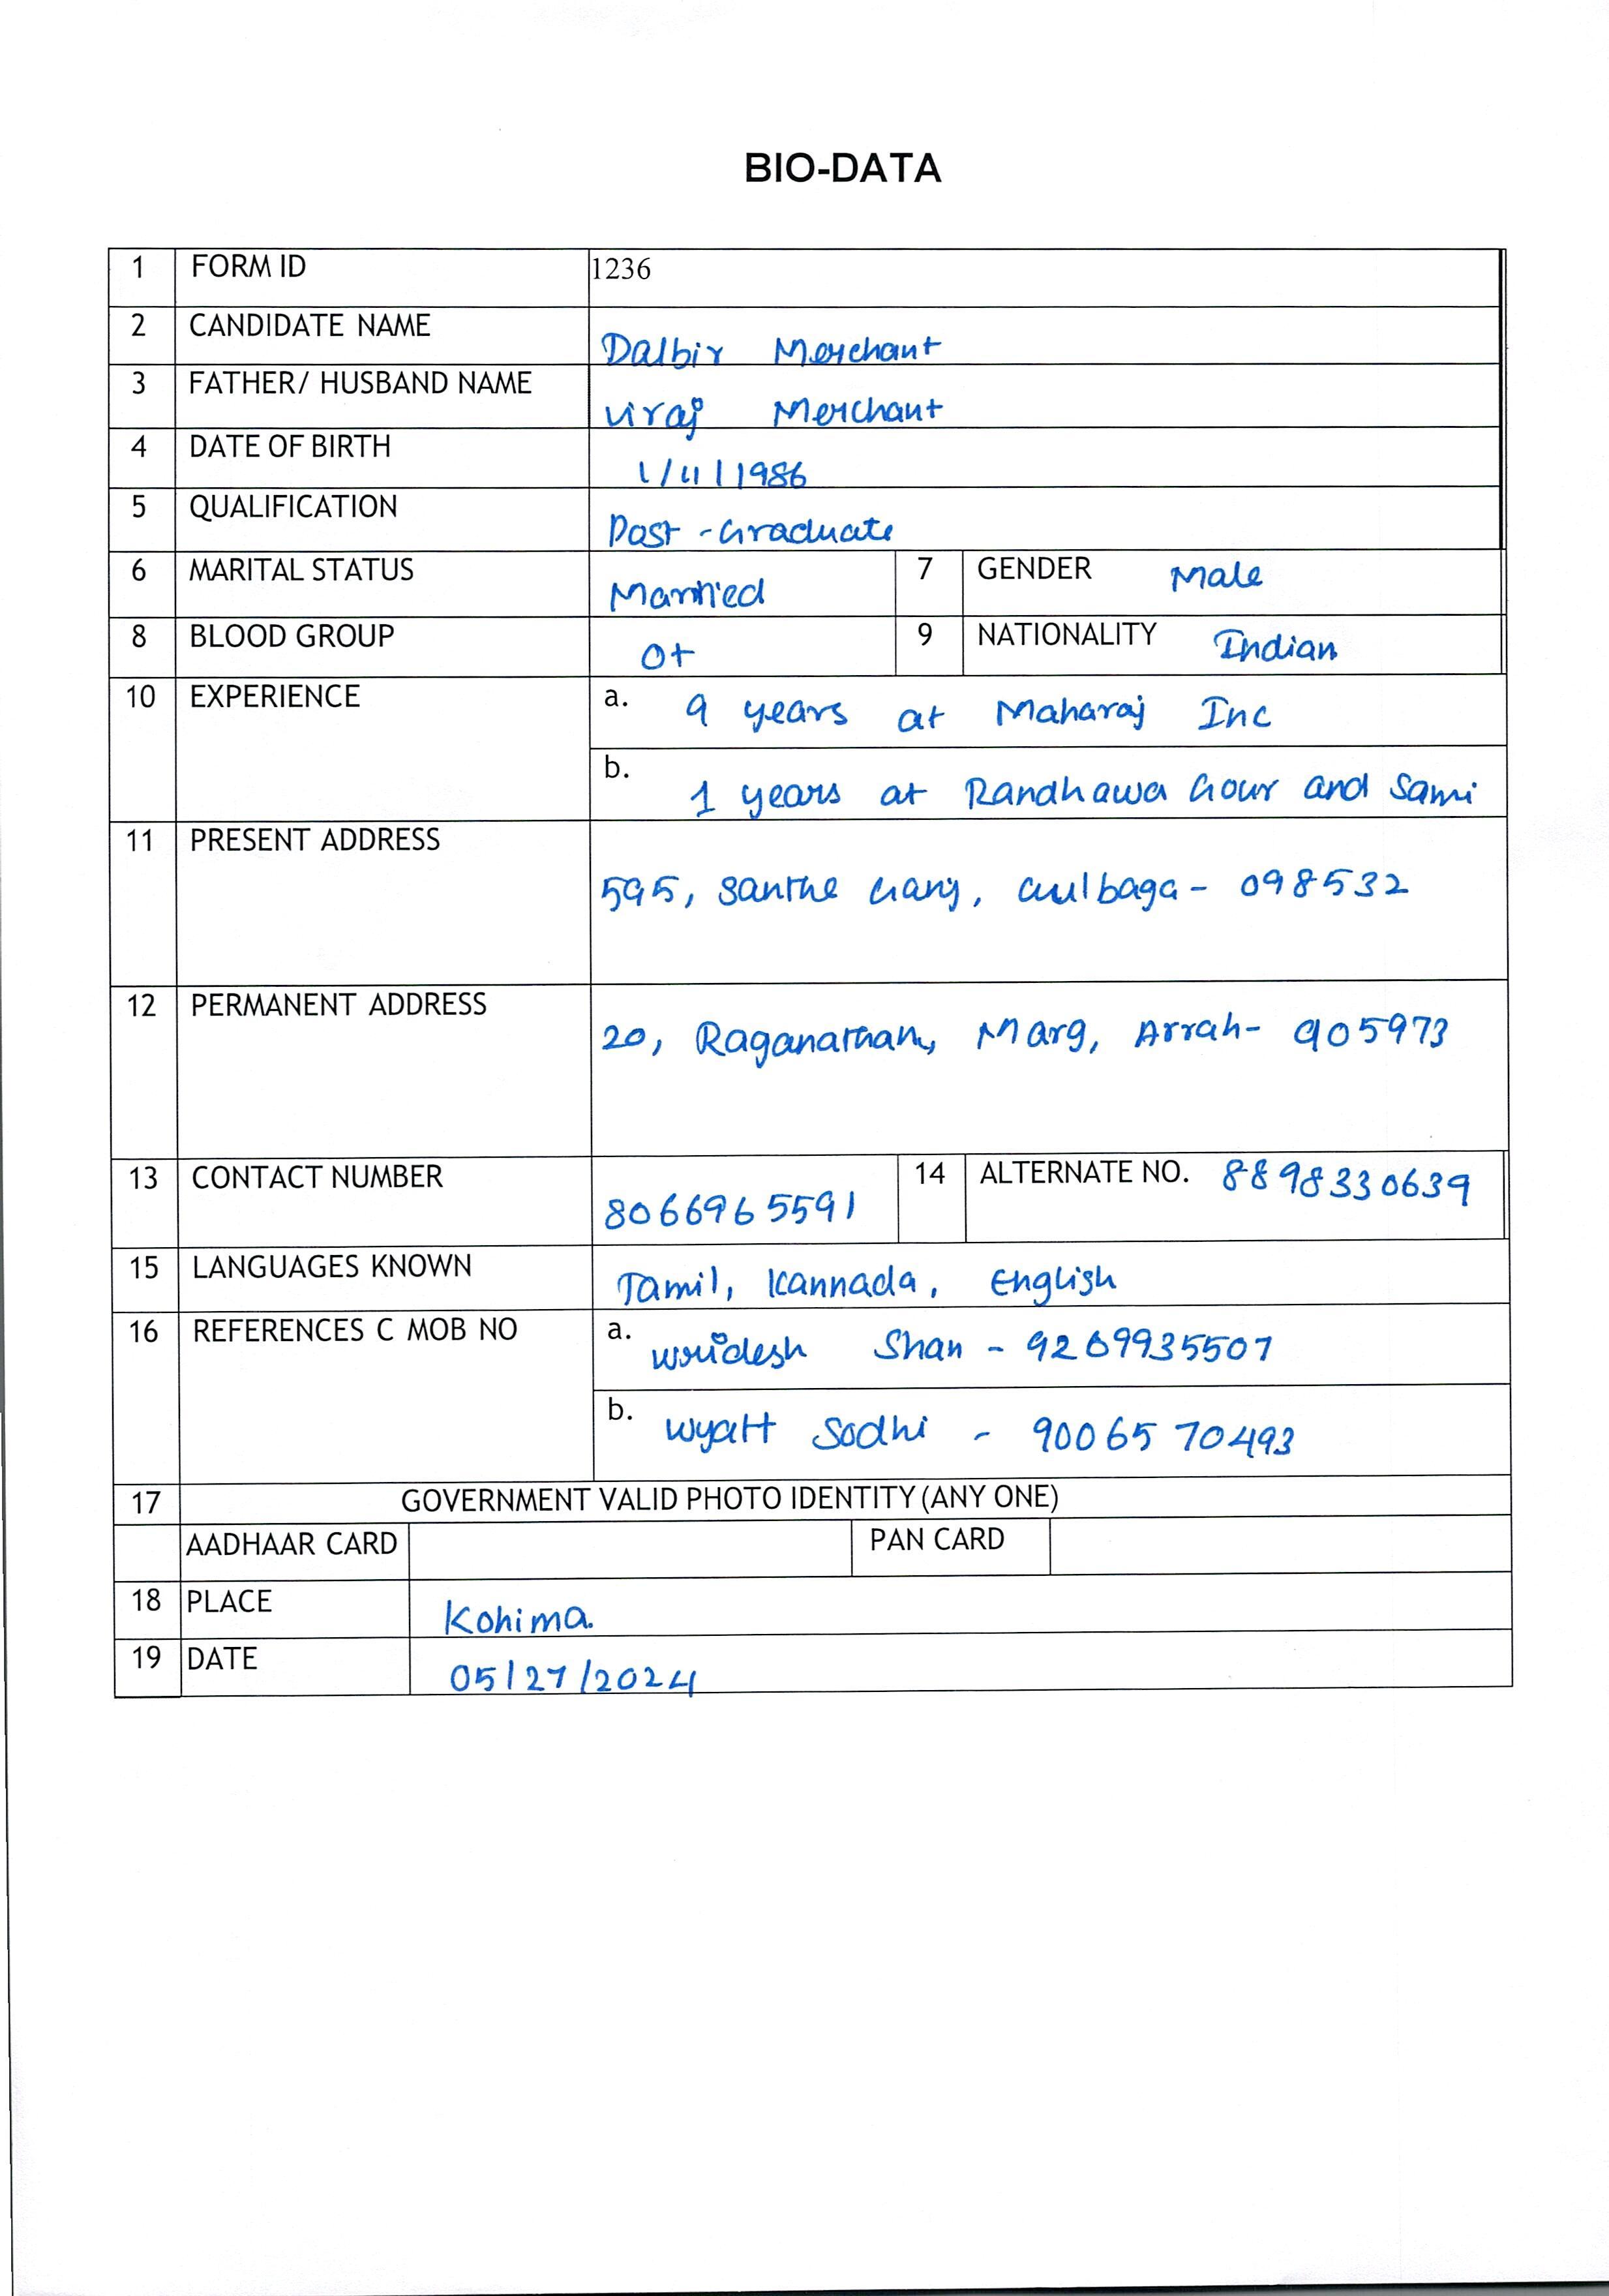 BIO-DATA
1 FORM ID 1236
2 CANDIDATE NAME Dalbir Merchant
3 FATHER/ HUSBAND NAME Viraj Merchant
4 DATE OF BIRTH 1/11/1986
5 QUALIFICATION Post-Graduate
6 MARITAL STATUS Married 7 GENDER Male
8 BLOOD GROUP O+ 9 NATIONALITY Indian
10 EXPERIENCE a. 9 years at Maharaj Inc
b. 1 years at Randhawa Gour and Sami
11 PRESENT ADDRESS 595, Santhe Gang, Gulbaga- 098532
12 PERMANENT ADDRESS 20, Raganathan, Marg, Arrah- 905973
13 CONTACT NUMBER 8066965591 14 ALTERNATE NO. 8898330639
15 LANGUAGES KNOWN Tamil, Kannada, English
16 REFERENCES C MOB NO a. Shan - 9269935507
b. Wyatt Sodhi - 9006570493
17 GOVERNMENT VALID PHOTO IDENTITY (ANY ONE)
AADHAAR CARD PAN CARD
18 PLACE Kohima.
19 DATE 05/27/2024